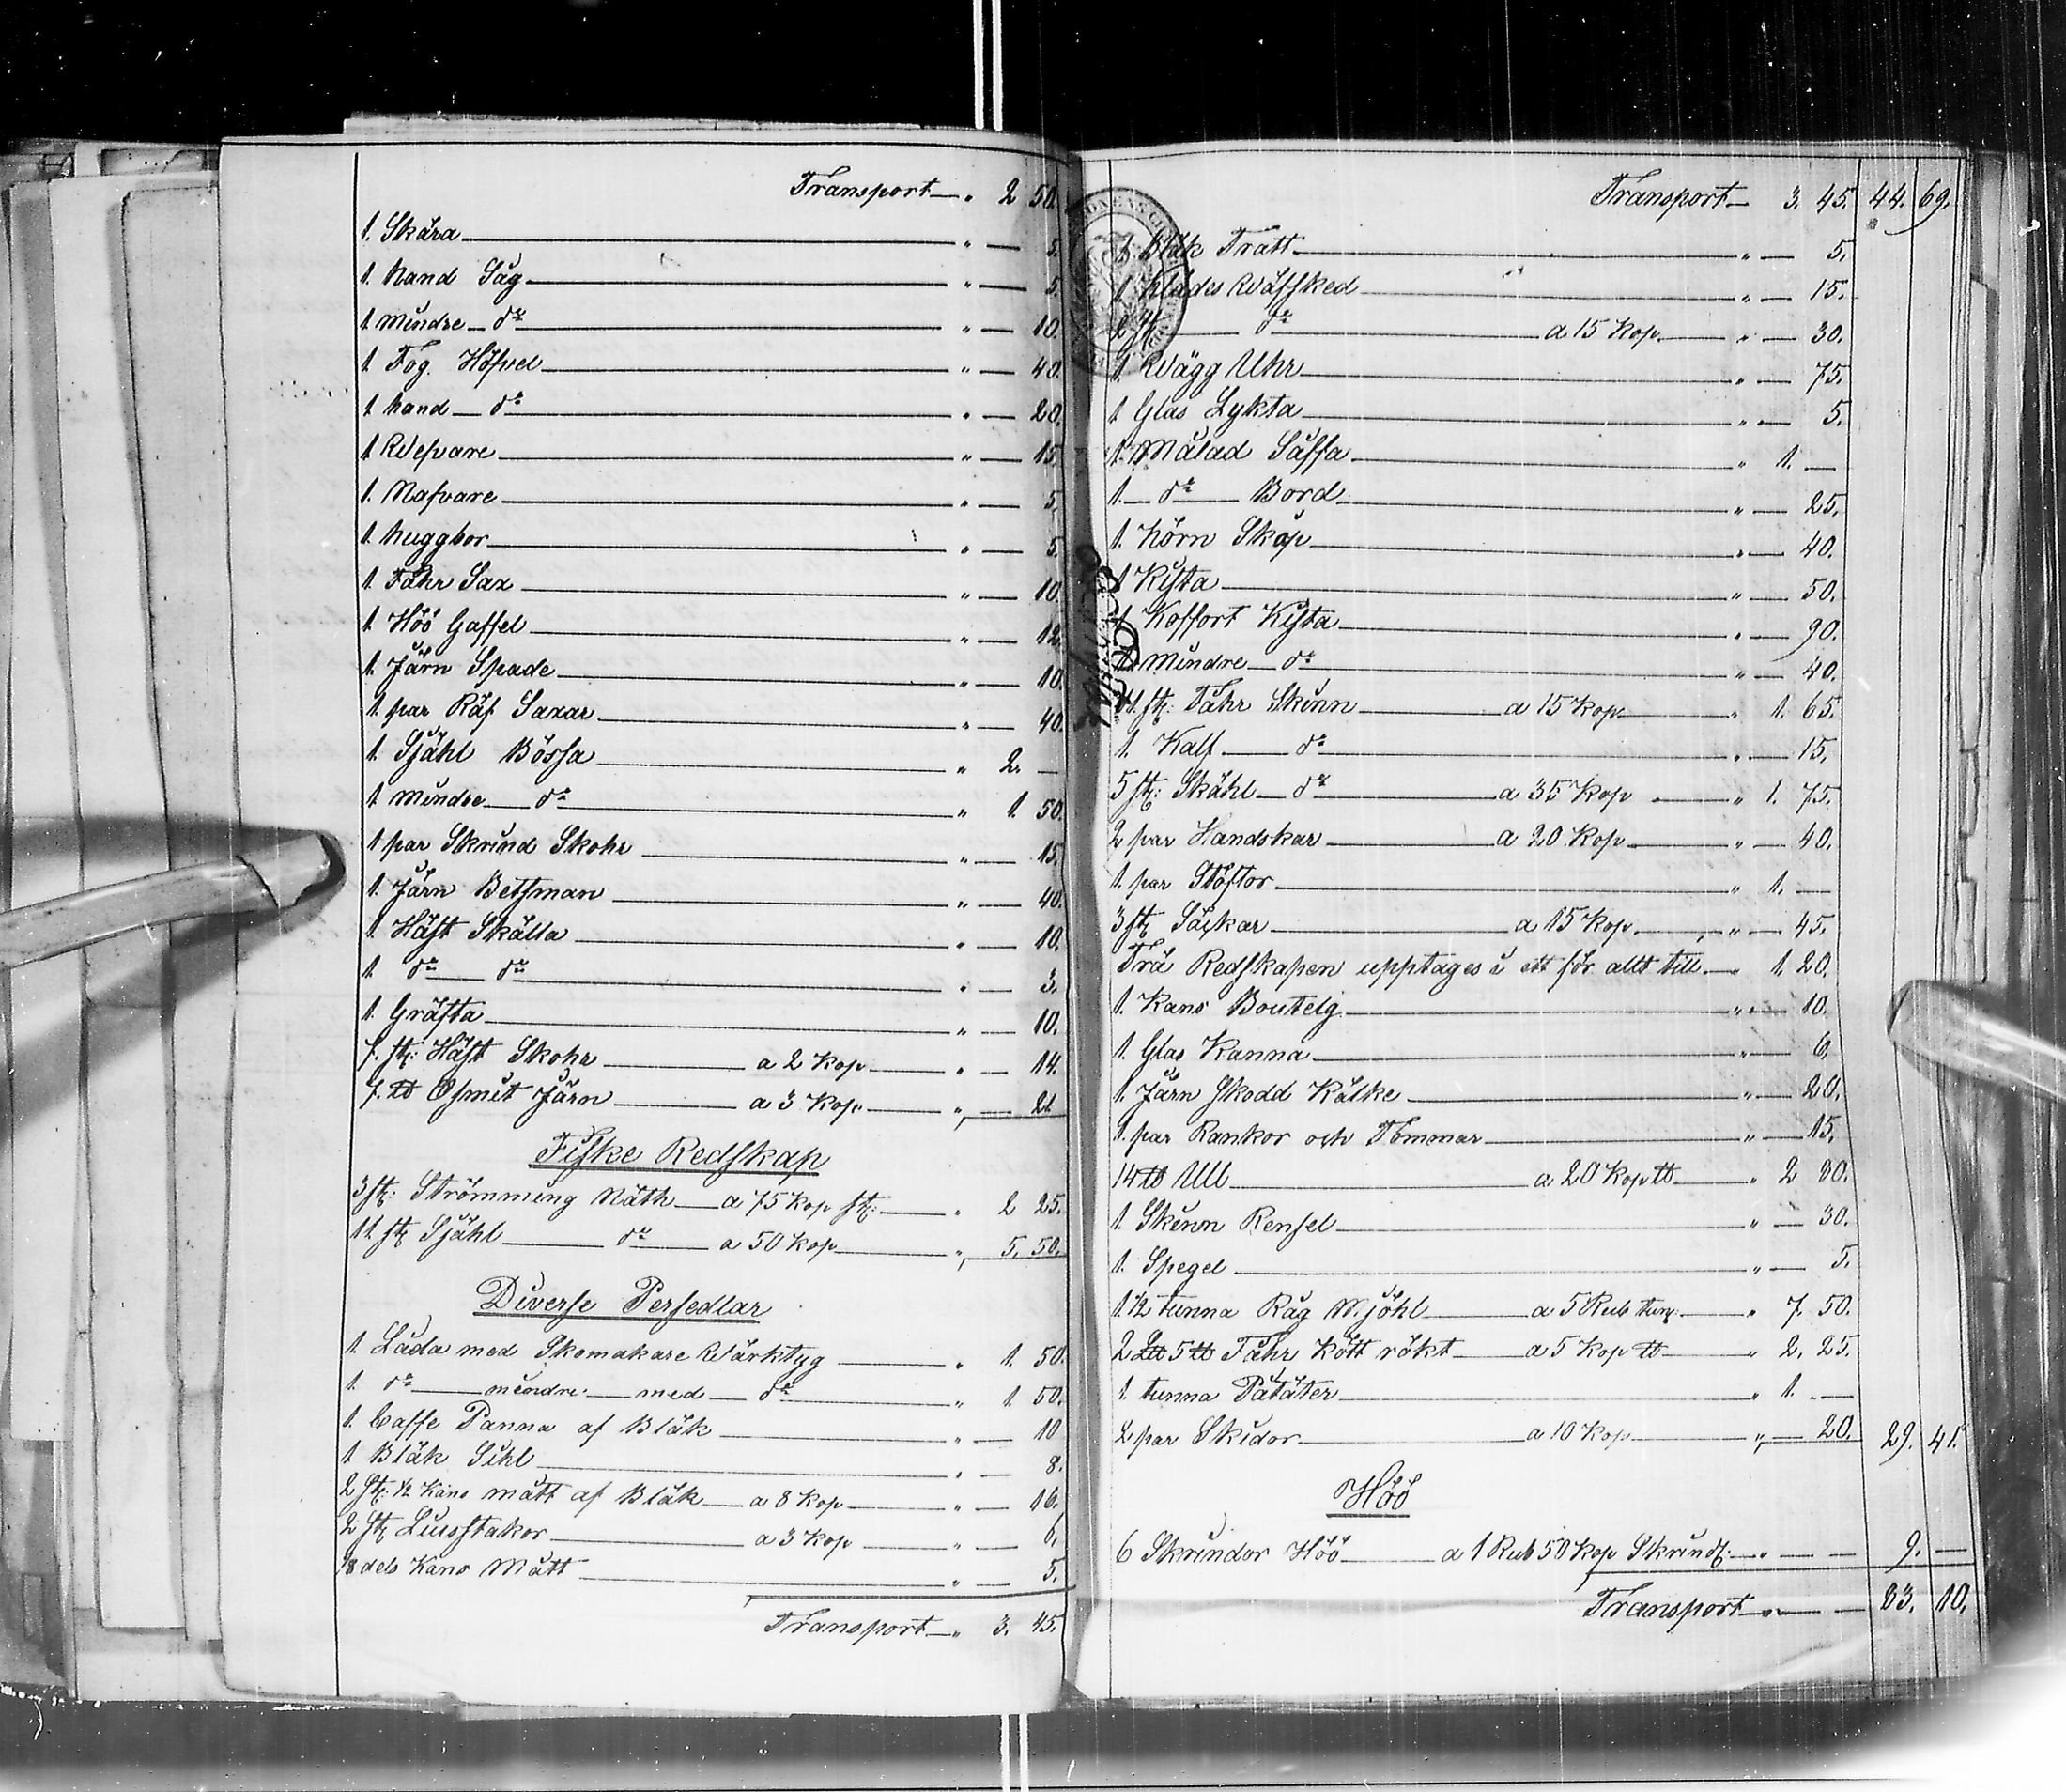 Transport — „ 2 50.
1. Skära — „ — 5.
1. hand Såg — „ — 5.
1. mindre — do — „ — 10.
1. Fog. Höfvel — „ — 40.
1. hand — do — „ — 20.
1. Wefvare — „ — 15.
1. Nafvare — „ — 5.
1. huggbor — „ — 5.
1. Fåhr Sax — „ — 10.
1. Höö Gaffel — „ — 12.
1. Järn Spade — „ — 10.
1. par Räf Saxar — „ — 40.
1. Sjähl Bössa — „ 2. —
1. mindre — do — „ 1. 50.
1 par Skrind Skohr — „ — 15.
1. Järn Betsman — „ — 40.
1. Häst Skälla — „ — 10.
1. do — do — „ — 3.
1. Gräfta — „ — 10.
7. st: Häst Skohr — a 2 Kop — „ — 14.
7. ℔ Osmit Järn — a 3 Kop. — „ — 21.
Fiske Redskap
3 st: Strömming Näth — a 75 Kop st: — „ 2 25.
11. st Sjähl — do — a 50 Kop — „ 5. 50.
Diverse Persedlar
1. Låda med Skomakare Wärktyg — „ 1. 50.
1. do — mindre — med — do — „ 1. 50.
1. Caffe Panna af Bläk — „ — 10
1 Bläk Sihl — „ — 8.
2 st: 1/2 Kans mått af Bläk — a 8 Kop — „ — 16.
2 st Ljusstakor — a 3 Kop — „ — 6.
1/8 dels Kans Mått — „ — 5.
Transport — „ 3. 45.
Transport — 3. 45. 44. 69.
1. Bläk Tratt — „ — 5.
1 Klädes Wäfsked — „ — 15.
2 st — do — a 15 Kop. — „ — 30.
1. Wägg Uhr — „ — 75.
1 Glas Lykta — „ — 5.
1. Målad Såffa — „ 1. —
1. — do — Bord — „ — 25.
1. hörn Skåp — „ — 40.
1 Kista — „ — 50.
1 Koffort Kista — „ — 90.
1. mindre — do — „ — 40.
11. st: Fåhr Skinn — a 15 Kop. — „ 1. 65.
1. Kalf — do — „ — 15.
5 st: Skähl — do — a 35 Kop — „ 1. 75.
2 par Handskar — a 20 Kop — „ — 40.
1. par Stöftor — „ 1. —
3 st Säckar — a 15 Kop. — „ — 45.
Trä Redskapen upptages i ett för allt till — „ 1. 20.
1. Kans Boutelg — „ — 10.
1. Glas Kanna — „ — 6.
1. Järn Skodd Kälke — „ — 20.
1. par Rankor och Tömmar — „ — 15.
14 ℔ Ull — a 20 Kop ℔ — „ 2 80.
1. Skinn Rensel — „ — 30.
1. Spegel — „ — 5.
1. 1/2 tunna Råg Mjöhl — a 5 Rub tun: — „ 7. 50.
2 L℔ 5 ℔ Fåhr Kött rökt — a 5 Kop ℔ — „ 2. 25.
1. tunna Pätäter — „ 1. —
2 par Skidor — a 10 Kop — „ — 20. 29. 41.
Höö
6 Skrindor Höö — a 1 Rub 50 Kop Skrind: — „ — — 9. —
Transport — „ — — 83. 10.